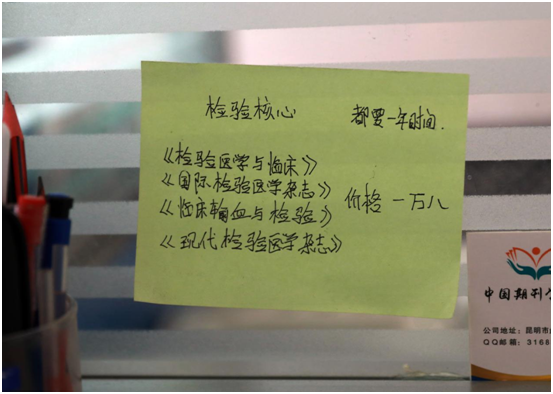 检验核心 都要一年时间.
《检验医学与临床》
《国际检验医学杂志》
《临床输血与检验》
价格 一万八
《现代检验医学杂志》
中国期刊
公司地址：昆明市
QQ邮箱：3168